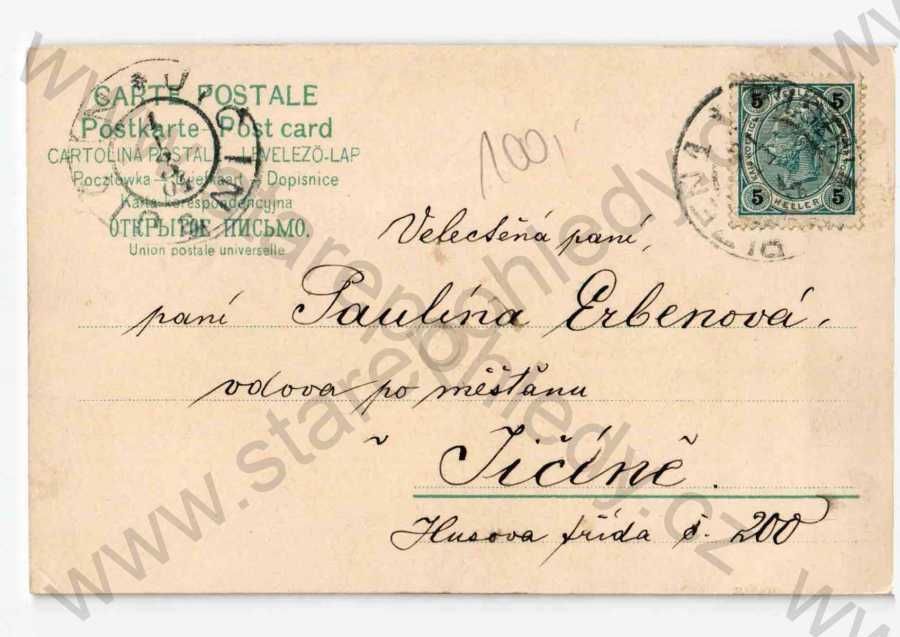 CARTE POSTALE
Postkarte - Post card
CARTOLINA POSTALE - LEVELEZÖ-LAP
Pocztówka - Briefkaart - Dopisnice
Karta korespondencyjna
ОТКРЫТОЕ ПИСЬМО.
Union postale universelle
100,
5 5
5 HELLER 5
Velectěná paní,
paní Paulína Erbenová,
vdova po měšťanu
v Jičíně.
Husova třída č. 200
www.starepohledy.cz
www.starepohledy.cz